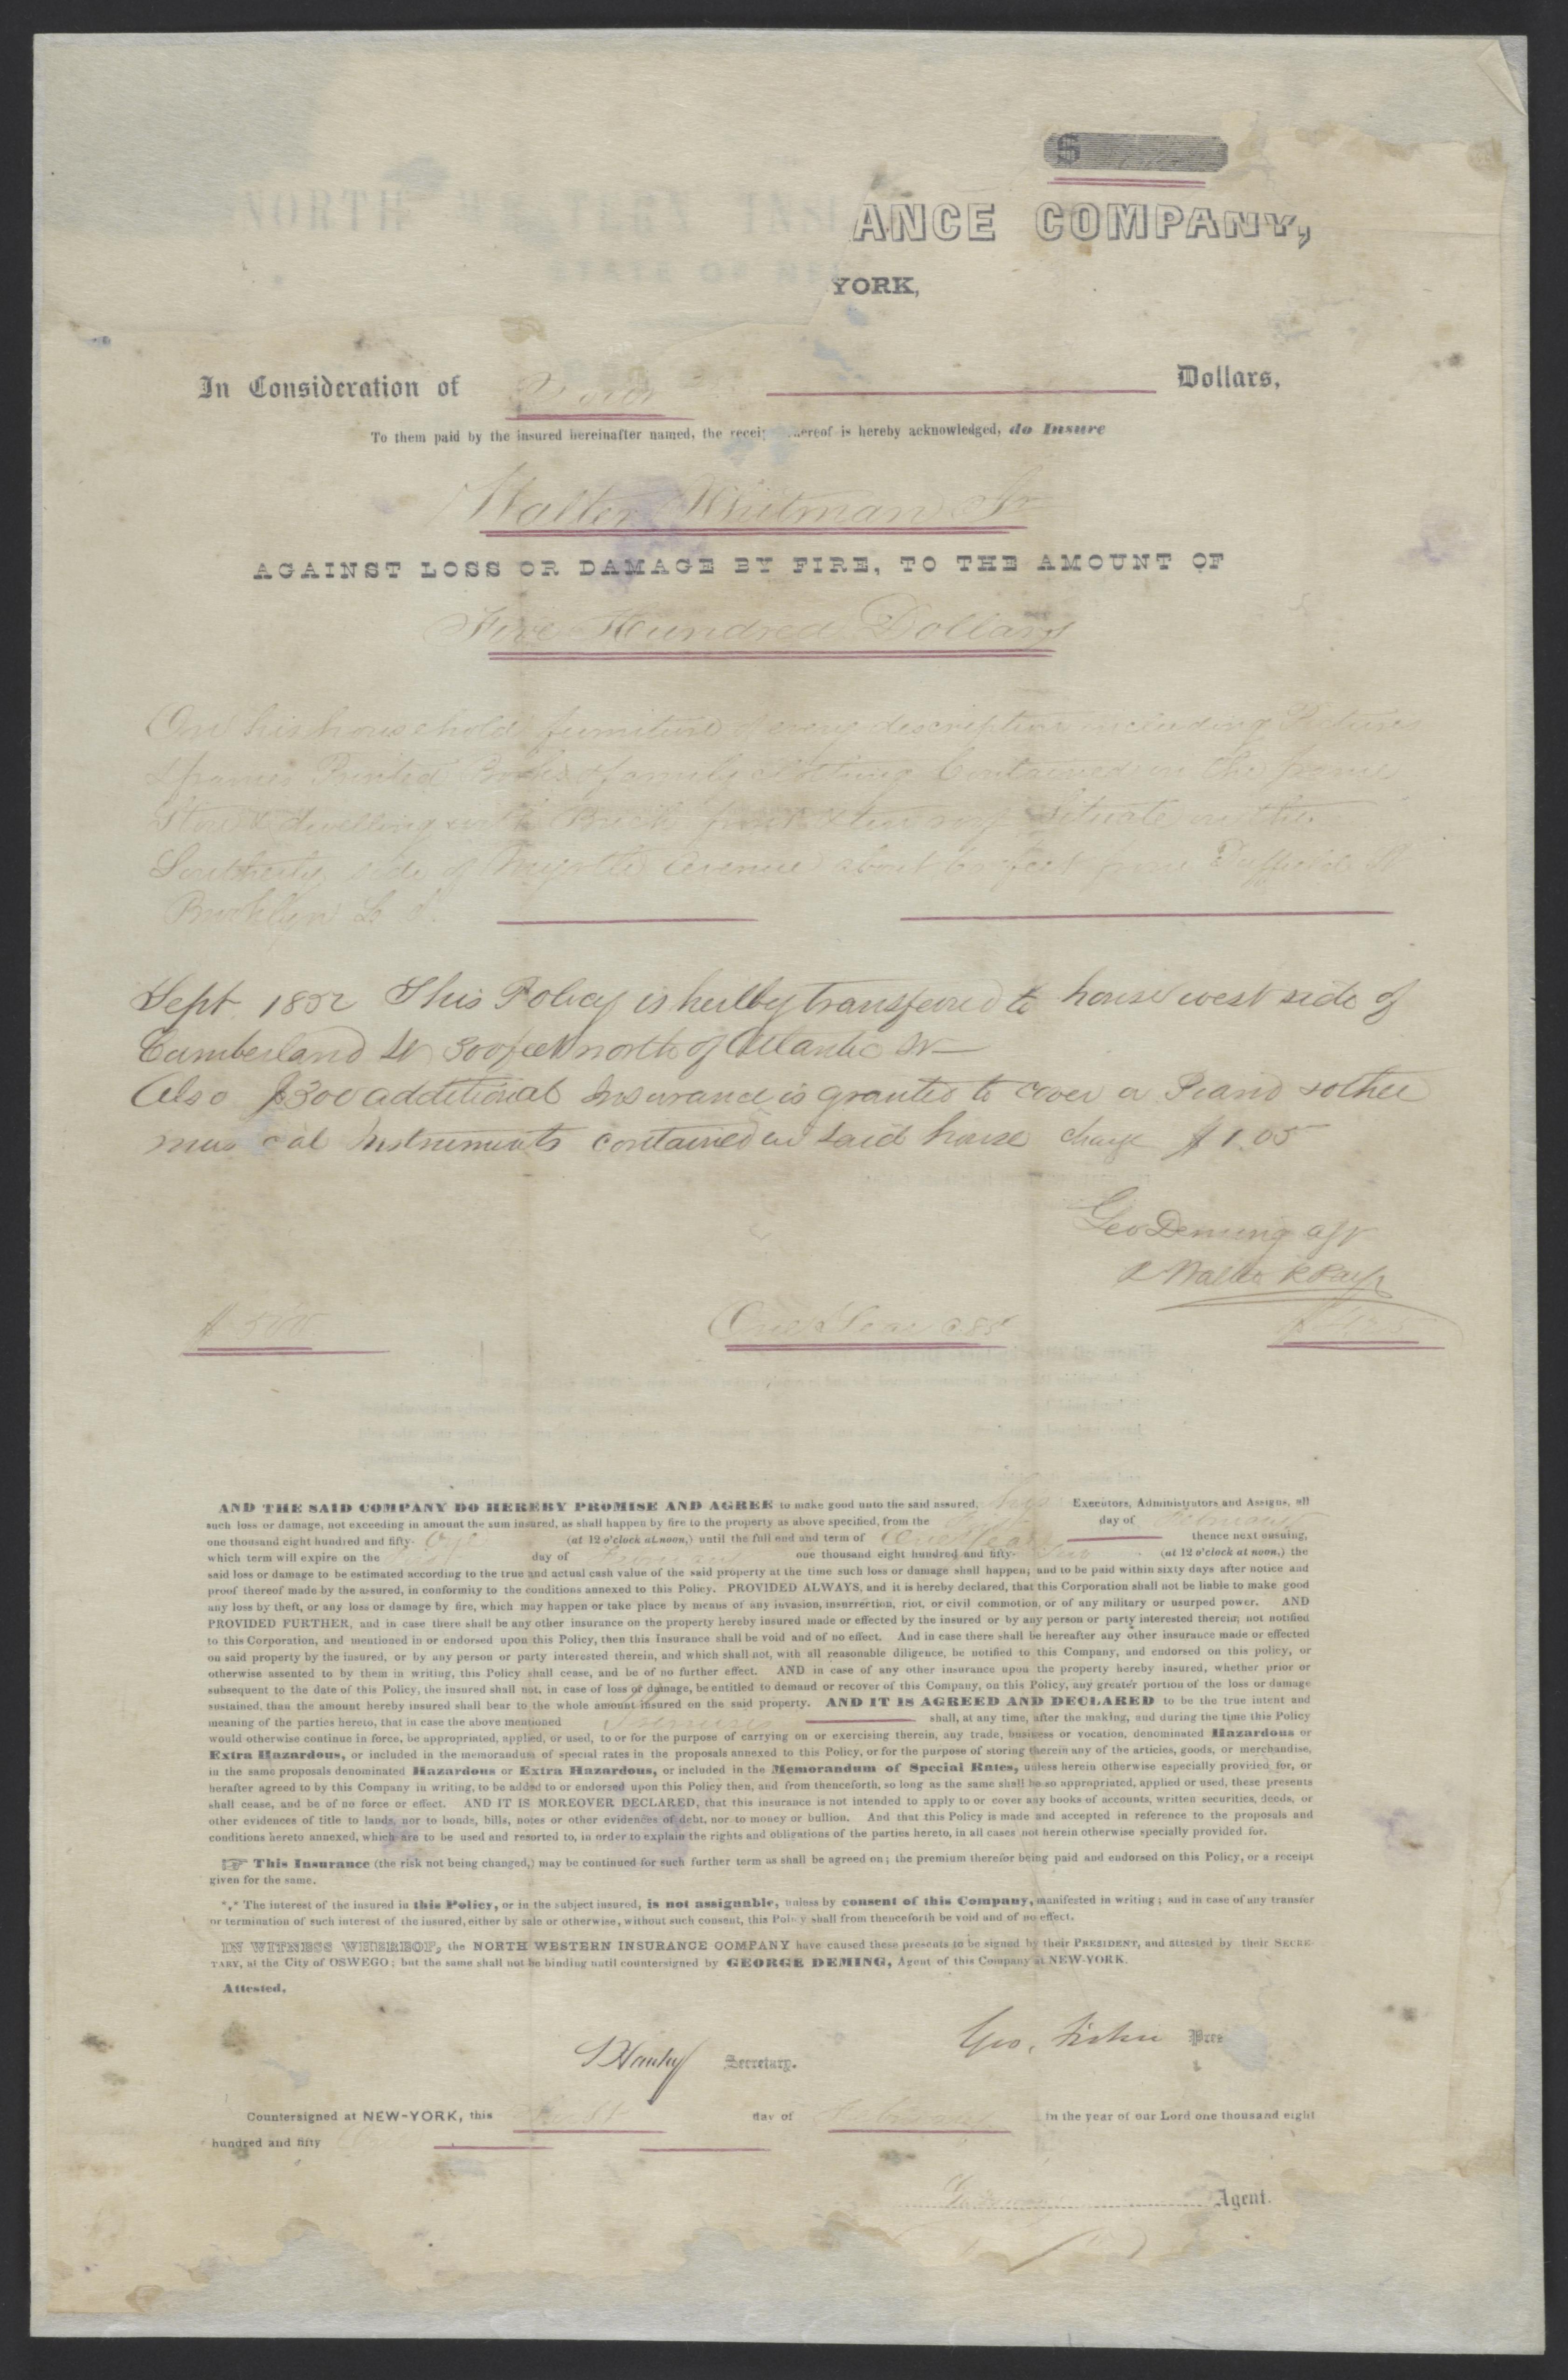 $
NORTH WESTERN INSURANCE COMPANY,
STATE OF NEW YORK,
In Consideration of Four Dollars,
To them paid by the insured hereinafter named, the receipt hereof is hereby acknowledged, do Insure
Walter Whitman Jr
AGAINST LOSS OR DAMAGE BY FIRE, TO THE AMOUNT OF
Five Hundred Dollars
On his household furniture of every description including Pictures
& frames Printed Books & family clothing Contained in the frame
Store & dwelling with Brick front & tin roof Situate on the
Southerly side of Myrtle Avenue about 60 feet from Duffield St
Brooklyn L. I.
Sept 1852 This Policy is heilby transfered to house west side of
Cumberland St 300 feet north of Atlantic St
Also $300 additional Insurance is granted to cover a Piano & other
mus cal Instruments contained in said house charge $1.05
Geo Deming agt
Walter R
$500 One Year
AND THE SAID COMPANY DO HEREBY PROMISE AND AGREE to make good unto the said assured, his Executors, Administrators and Assigns, all
such loss or damage, not exceeding in amount the sum insured, as shall happen by fire to the property as above specified, from the first day of February
one thousand eight hundred and fifty- One (at 12 o'clock at noon,) until the full end and term of One Year thence next ensuing,
which term will expire on the first day of February one thousand eight hundred and fifty- two (at 12 o'clock at noon,) the
said loss or damage to be estimated according to the true and actual cash value of the said property at the time such loss or damage shall happen; and to be paid within sixty days after notice and
proof thereof made by the assured, in conformity to the conditions annexed to this Policy. PROVIDED ALWAYS, and it is hereby declared, that this Corporation shall not be liable to make good
any loss by theft, or any loss or damage by fire, which may happen or take place by means of any invasion, insurrection, riot, or civil commotion, or of any military or usurped power. AND
PROVIDED FURTHER, and in case there shall be any other insurance on the property hereby insured made or effected by the insured or by any person or party interested therein; not notified
to this Corporation, and mentioned in or endorsed upon this Policy, then this Insurance shall be void and of no effect. And in case there shall be hereafter any other insurance made or effected
on said property by the insured, or by any person or party interested therein, and which shall not, with all reasonable diligence, be notified to this Company, and endorsed on this policy, or
otherwise assented to by them in writing, this Policy shall cease, and be of no further effect. AND in case of any other insurance upon the property hereby insured, whether prior or
subsequent to the date of this Policy, the insured shall not, in case of loss or damage, be entitled to demand or recover of this Company, on this Policy, any greater portion of the loss or damage
sustained, than the amount hereby insured shall bear to the whole amount insured on the said property. AND IT IS AGREED AND DECLARED to be the true intent and
meaning of the parties hereto, that in case the above mentioned Premises shall, at any time, after the making, and during the time this Policy
would otherwise continue in force, be appropriated, applied, or used, to or for the purpose of carrying on or exercising therein, any trade, business or vocation, denominated Hazardous or
Extra Hazardous, or included in the memorandum of special rates in the proposals annexed to this Policy, or for the purpose of storing therein any of the articles, goods, or merchandise,
in the same proposals denominated Hazardous or Extra Hazardous, or included in the Memorandum of Special Rates, unless herein otherwise especially provided for, or
herafter agreed to by this Company in writing, to be added to or endorsed upon this Policy then, and from thenceforth, so long as the same shall be so appropriated, applied or used, these presents
shall cease, and be of no force or effect. AND IT IS MOREOVER DECLARED, that this insurance is not intended to apply to or cover any books of accounts, written securities, deeds, or
other evidences of title to lands, nor to bonds, bills, notes or other evidences of debt, nor to money or bullion. And that this Policy is made and accepted in reference to the proposals and
conditions hereto annexed, which are to be used and resorted to, in order to explain the rights and obligations of the parties hereto, in all cases not herein otherwise specially provided for.
☞ This Insurance (the risk not being changed,) may be continued for such further term as shall be agreed on; the premium therefor being paid and endorsed on this Policy, or a receipt
given for the same.
*.* The interest of the insured in this Policy, or in the subject insured, is not assignable, unless by consent of this Company, manifested in writing; and in case of any transfer
or termination of such interest of the insured, either by sale or otherwise, without such consent, this Policy shall from thenceforth be void and of no effect.
IN WITNESS WHEREOF, the NORTH WESTERN INSURANCE COMPANY have caused these presents to be signed by their PRESIDENT, and attested by their SECRE-
TARY, at the City of OSWEGO; but the same shall not be binding until countersigned by GEORGE DEMING, Agent of this Company at NEW-YORK.
Attested,
Geo. Fisher Pres
Secretary.
Countersigned at NEW-YORK, this first day of February in the year of our Lord one thousand eight
hundred and fifty
Agent.